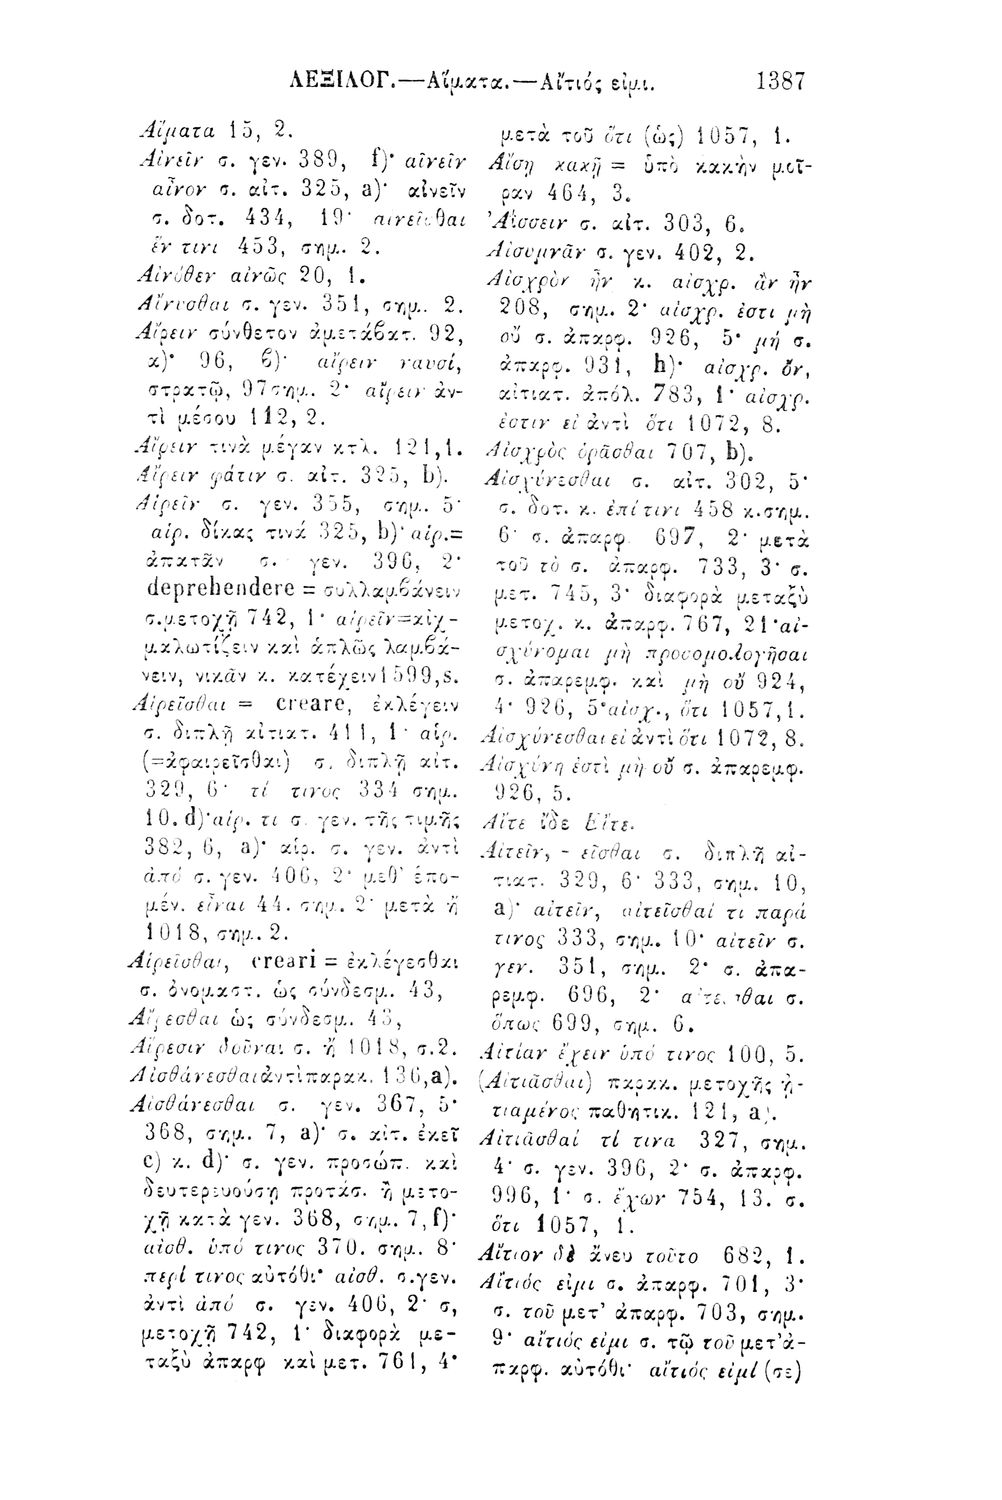 ΛΕΞΙΛΟΓ.—Αἵματα.—Αἴτιός εἰμι. 1387
Αἵματα 15, 2.
Αἰνεῖν σ. γεν. 389, f)· αἰνεῖν
αἶνον σ. αἰτ. 325, a)· αἰνεῖν
σ. δοτ. 434, 19· αἰνεῖσθαι
ἔν τινι 453, σημ. 2.
Αἰνόθεν αἰνῶς 20, 1.
Αἴνυσθαι σ. γεν. 351, σημ. 2.
Αἴρειν σύνθετον ἀμετάβατ. 92,
α)· 96, β)· αἴρειν ναυσί,
στρατῷ, 97 σημ. 2· αἴρειν ἀν-
τὶ μέσου 112, 2.
Αἴρειν τινὰ μέγαν κτλ. 121,1.
Αἴρειν φάτιν σ. αἰτ. 325, b).
Αἱρεῖν σ. γεν. 355, σημ. 5·
αἱρ. δίκας τινά 325, b)· αἱρ.=
ἀπατᾶν σ. γεν. 396, 2·
deprehendere = συλλαμβάνειν
σ.μετοχῇ 742, 1· αἱρεῖν=αἰχ-
μαλωτίζειν καὶ ἁπλῶς λαμβά-
νειν, νικᾶν κ. κατέχειν 1599,s.
Αἱρεῖσθαι = creare, ἐκλέγειν
σ. διπλῇ αἰτιατ. 411, 1· αἱρ.
(=ἀφαιρεῖσθαι) σ. διπλῇ αἰτ.
329, 6· τί τινος 334 σημ.
10. d)·αἱρ. τι σ. γεν. τῆς τιμῆς
382, 6, a)· αἱρ. σ. γεν. ἀντὶ
ἀπό σ. γεν. 406, 2· μεθ' ἑπο-
μέν. εἶναι 44. σημ. 2· μετὰ ἤ
1018, σημ. 2.
Αἱρεῖσθαι, creari = ἐκλέγεσθαι
σ. ὀνομαστ. ὡς σύνδεσμ. 43,
Αἴρεσθαι ὡς σύνδεσμ. 43,
Αἵρεσιν δοῦναι σ. ἤ 1018, σ.2.
Αἰσθάνεσθαι ἀντὶ παρακ. 136,a).
Αἰσθάνεσθαι σ. γεν. 367, 5·
368, σημ. 7, a)· σ. αἰτ. ἐκεῖ
c) κ. d)· σ. γεν. προσώπ. καὶ
δευτερευούσῃ προτάσ. ἢ μετο-
χῇ κατὰ γεν. 368, σημ. 7, f)·
αἰσθ. ὑπό τινος 370. σημ. 8·
περί τινος αὐτόθι· αἰσθ. σ.γεν.
ἀντὶ ἀπό σ. γεν. 406, 2· σ,
μετοχῇ 742, 1· διαφορὰ με-
ταξὺ ἀπαρφ καὶ μετ. 761, 4·
μετὰ τοῦ ὅτι (ὡς) 1057, 1.
Αἴσῃ κακῇ = ὑπὸ κακὴν μοῖ-
ραν 464, 3.
Ἀΐσσειν σ. αἰτ. 303, 6.
Αἰσυμνᾶν σ. γεν. 402, 2.
Αἰσχρὸν ἦν κ. αἰσχρ. ἂν ἦν
208, σημ. 2· αἰσχρ. ἐστι μὴ
οὔ σ. ἀπαρφ. 926, 5· μή σ.
ἀπαρφ. 931, h)· αἰσχρ. ὄν,
αἰτιατ. ἀπόλ. 783, 1· αἰσχρ.
ἐστιν εἰ ἀντὶ ὅτι 1072, 8.
Αἰσχρὸς ὁρᾶσθαι 707, b).
Αἰσχύνεσθαι σ. αἰτ. 302, 5·
σ. δοτ. κ. ἐπί τινι 458 κ.σημ.
6· σ. ἀπαρφ. 697, 2· μετὰ
τοῦ τὸ σ. ἀπαρφ. 733, 3· σ.
μετ. 745, 3· διαφορὰ μεταξὺ
μετοχ. κ. ἀπαρφ. 767, 21·αἰ-
σχύνομαι μὴ προσομολογῆσαι
σ. ἀπαρεμφ. καὶ μὴ οὔ 924,
4· 926, 5·αἰσχ., ὅτι 1057,1.
Αἰσχύνεσθαι εἰ ἀντὶ ὅτι 1072, 8.
Αἰσχύνη ἐστὶ μὴ οὔ σ. ἀπαρεμφ.
926, 5.
Αἴτε ἴδε Εἴτε.
Αἰτεῖν, - εῖσθαι σ. διπλῇ αἰ-
τιατ. 329, 6· 333, σημ. 10,
a)· αἰτεῖν, αἰτεῖσθαί τι παρά
τινος 333, σημ. 10· αἰτεῖν σ.
γεν. 351, σημ. 2· σ. ἀπα-
ρεμφ. 696, 2· αἰτεῖσθαι σ.
ὅπως 699, σημ. 6.
Αἰτίαν ἔχειν ὑπό τινος 100, 5.
(Αἰτιᾶσθαι) παρακ. μετοχῆς ᾐ-
τιαμένος παθητικ. 121, a).
Αἰτιᾶσθαί τί τινα 327, σημ.
4· σ. γεν. 396, 2· σ. ἀπαρφ.
996, 1· σ. ἔχων 754, 13. σ.
ὅτι 1057, 1.
Αἴτιον δὲ ἄνευ τοῦτο 682, 1.
Αἴτιός εἰμι σ. ἀπαρφ. 701, 3·
σ. τοῦ μετ' ἀπαρφ. 703, σημ.
9· αἴτιός εἰμι σ. τῷ τοῦ μετ'ἀ-
παρφ. αὐτόθι· αἴτιός εἰμί (σε)